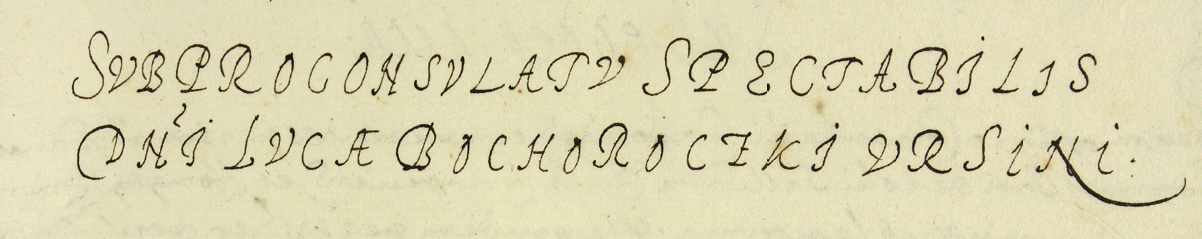 SVB PROCONSVLATV SPECTABILIS
DNI LVCÆ BOCHOROCZKI VRSINI.